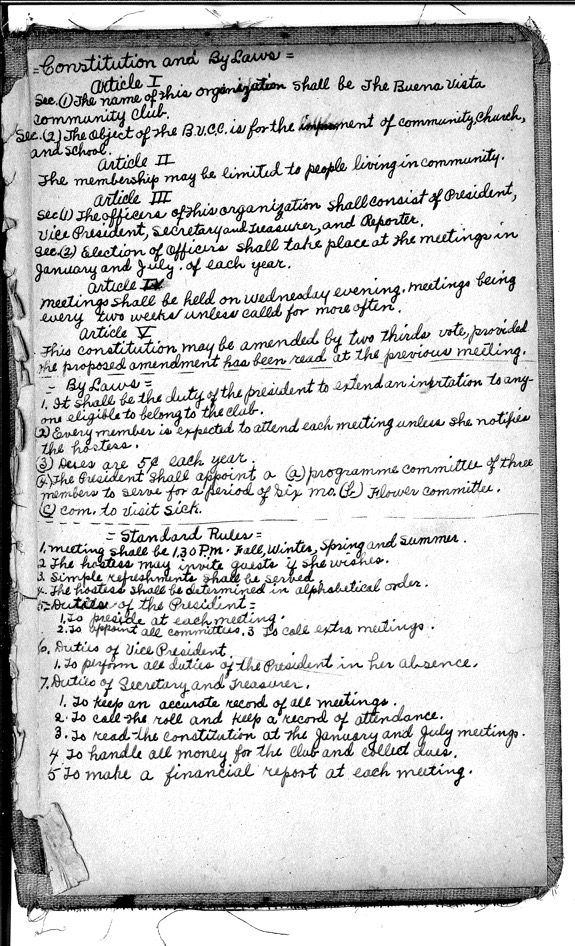 = Constitution and By Laws =
Article I
Sec. (1) The name of this organization shall be The Buena Vista
Community Club.
Sec. (2) The object of the B.V.C.C. is for the ment of community, church,
and school.
Article II
The membership may be limited to people living in community.
Article III
Sec (1) The officers of this organization shall consist of President,
Vice President, Secretary and Treasurer, and Reporter.
Sec. (2) Election of Officers shall take place at the meetings in
January and July. of each year.
Article IV
Meetings shall be held on Wednesday evening. Meetings being
every two weeks unless calld for more often.
Article V
This constitution may be amended by two thirds vote, provided
the proposed amendment has been read at the previous meeting.
= By Laws =
1. It shall be the duty of the president to extend an invitation to any-
one eligible to belong to the club.
(2) Every member is expected to attend each meeting unless she notifies
the hostess.
(3) Dues are 5¢ each year.
(4) The President shall appoint a (a) programme committee of three
members to serve for a period of six mo. (b) Flower committee.
(c) com. to visit sick.
= Standard Rules =
1. Meeting shall be 1.30 P.M. Fall, Winter, Spring and Summer.
2 The hostess may invite guests if she wishes.
3. Simple refreshments shall be served
4. The hostess shall be determined in alphabetical order.
5. Duties of the President =
1. To preside at each meeting.
2. To appoint all committees. 3 To call extra meetings.
6. Duties of Vice President.
1. To perform all duties of the President in her absence.
7. Duties of Secretary and Treasurer.
1. To keep an accurate record of all meetings.
2. To call the roll and keep a record of attendance.
3. To read the constitution at the January and July meetings.
4. To handle all money for the Club and collect dues.
5 To make a financial report at each meeting.